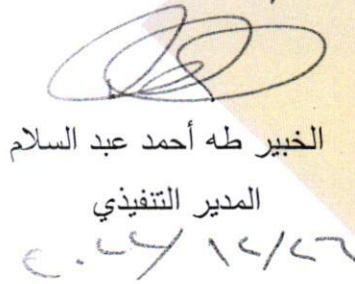 الخبير طه أحمد عبد السلام
المدير التنفيذي
٢٠٢٢/١٢/٢٦